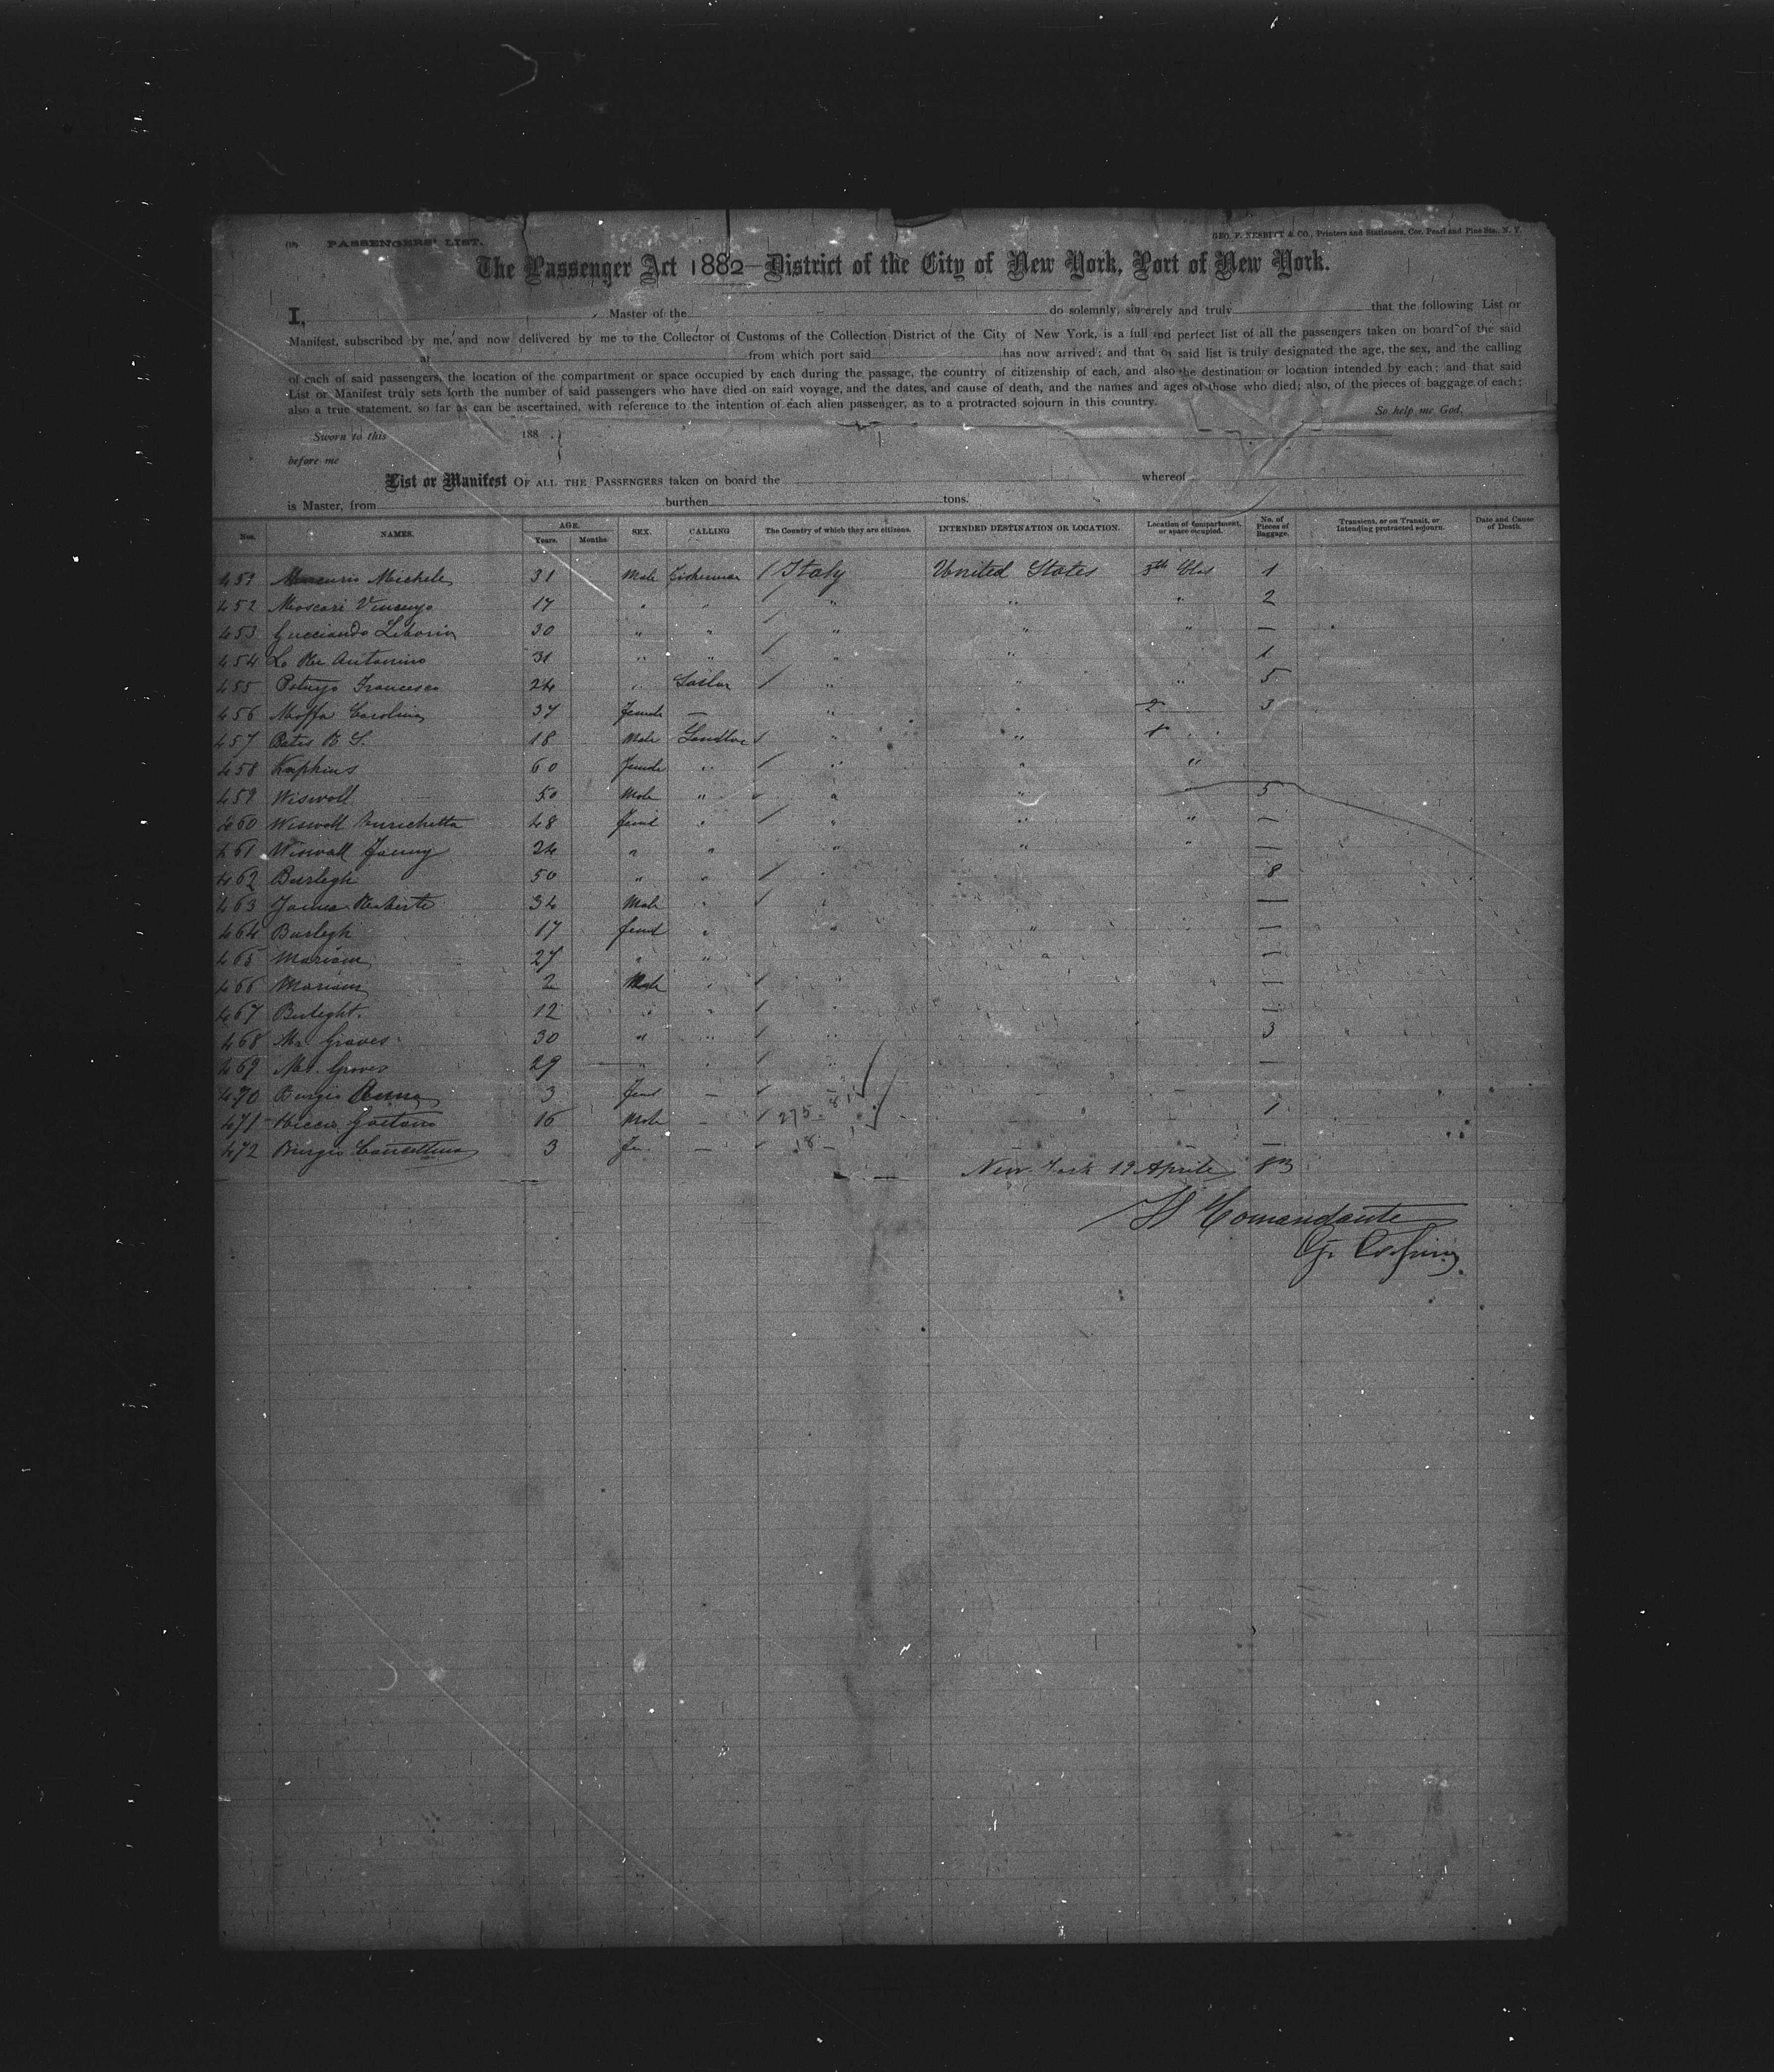 PASSENGERS' LIST.
GEO. F. NESBITT & CO., Printers and Stationers, Cor. Pearl and Pine Sts., N. Y.
The Passenger Act 1882—District of the City of New York, Port of New York.
I, Master of the do solemnly, sincerely and truly that the following List or
Manifest, subscribed by me, and now delivered by me to the Collector of Customs of the Collection District of the City of New York, is a full and perfect list of all the passengers taken on board of the said
at from which port said has now arrived; and that on said list is truly designated the age, the sex, and the calling
of each of said passengers, the location of the compartment or space occupied by each during the passage, the country of citizenship of each, and also the destination or location intended by each; and that said
List or Manifest truly sets forth the number of said passengers who have died on said voyage, and the dates, and cause of death, and the names and ages of those who died; also, of the pieces of baggage of each;
also a true statement, so far as can be ascertained, with reference to the intention of each alien passenger, as to a protracted sojourn in this country. So help me God.
Sworn to this 188 .}
before me
List or Manifest OF ALL THE PASSENGERS taken on board the whereof
is Master, from burthen tons.
Nos. NAMES. AGE. Years. Months SEX. CALLING The Country of which they are citizens. INTENDED DESTINATION OR LOCATION. Location of compartment, or space occupied. No. of Pieces of Baggage. Transient, or on Transit, or Intending protracted sojourn. Date and Cause of Death.
451 Michele 31 Male Fisherman / Italy United States 3th Clas 1
452 Moscari Vincenzo 17 " " " " " 2
453 Gucciardo Liborio 30 " " " " " —
454 Lo Re Antonino 31 " " " " 1
455 Francesco 24 " / " " " 5
456 Moffa Carolina 37 female — " " 2 3
457 Bates 18 Male / " " 1
458 Hopkins 60 Female " / " " "
459 Wiswall 50 Male " " " " 5
460 Wiswall Enrichetta 48 femal " / " " " —
461 Wiswall Fanny 24 " " " " " —
462 Burlegh 50 " " / 8
463 James 34 Male " / —
464 Burlegh 17 femal " " " —
465 Mariam 27 " " " —
466 Mariam 2 Male " / —
467 Burleght. 12 " " / —
468 Mr Graves 30 " " / 3
469 Graves 29 — " / —
470 Burgio 3 Fem — /
471 Gaetano 16 Male — / 275 1
472 Burgio Concettina 3 Fe. — / 18 — —
New York 19 Aprile 83
Il Comandante